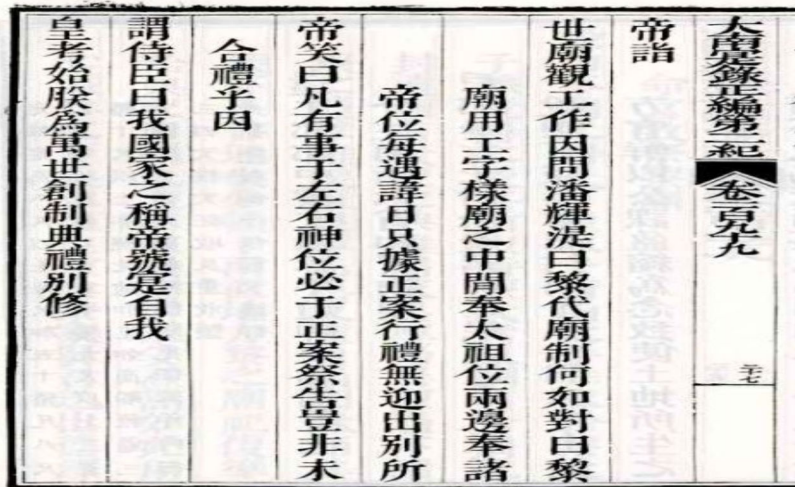 大南寔錄正編第二紀 卷一百九十九 二十七
帝詣
世廟觀工作因問潘輝湜曰黎代廟制何如對曰黎
廟用工字樣廟之中間奉太祖位兩邊奉諸
帝位每遇諱日只據正案行禮無迎出別所
帝笑曰凡有事于左右神位必于正案祭告豈非未
合禮乎因
謂侍臣曰我國家之稱帝號寔自我
皇考始朕爲萬世創制典禮別修